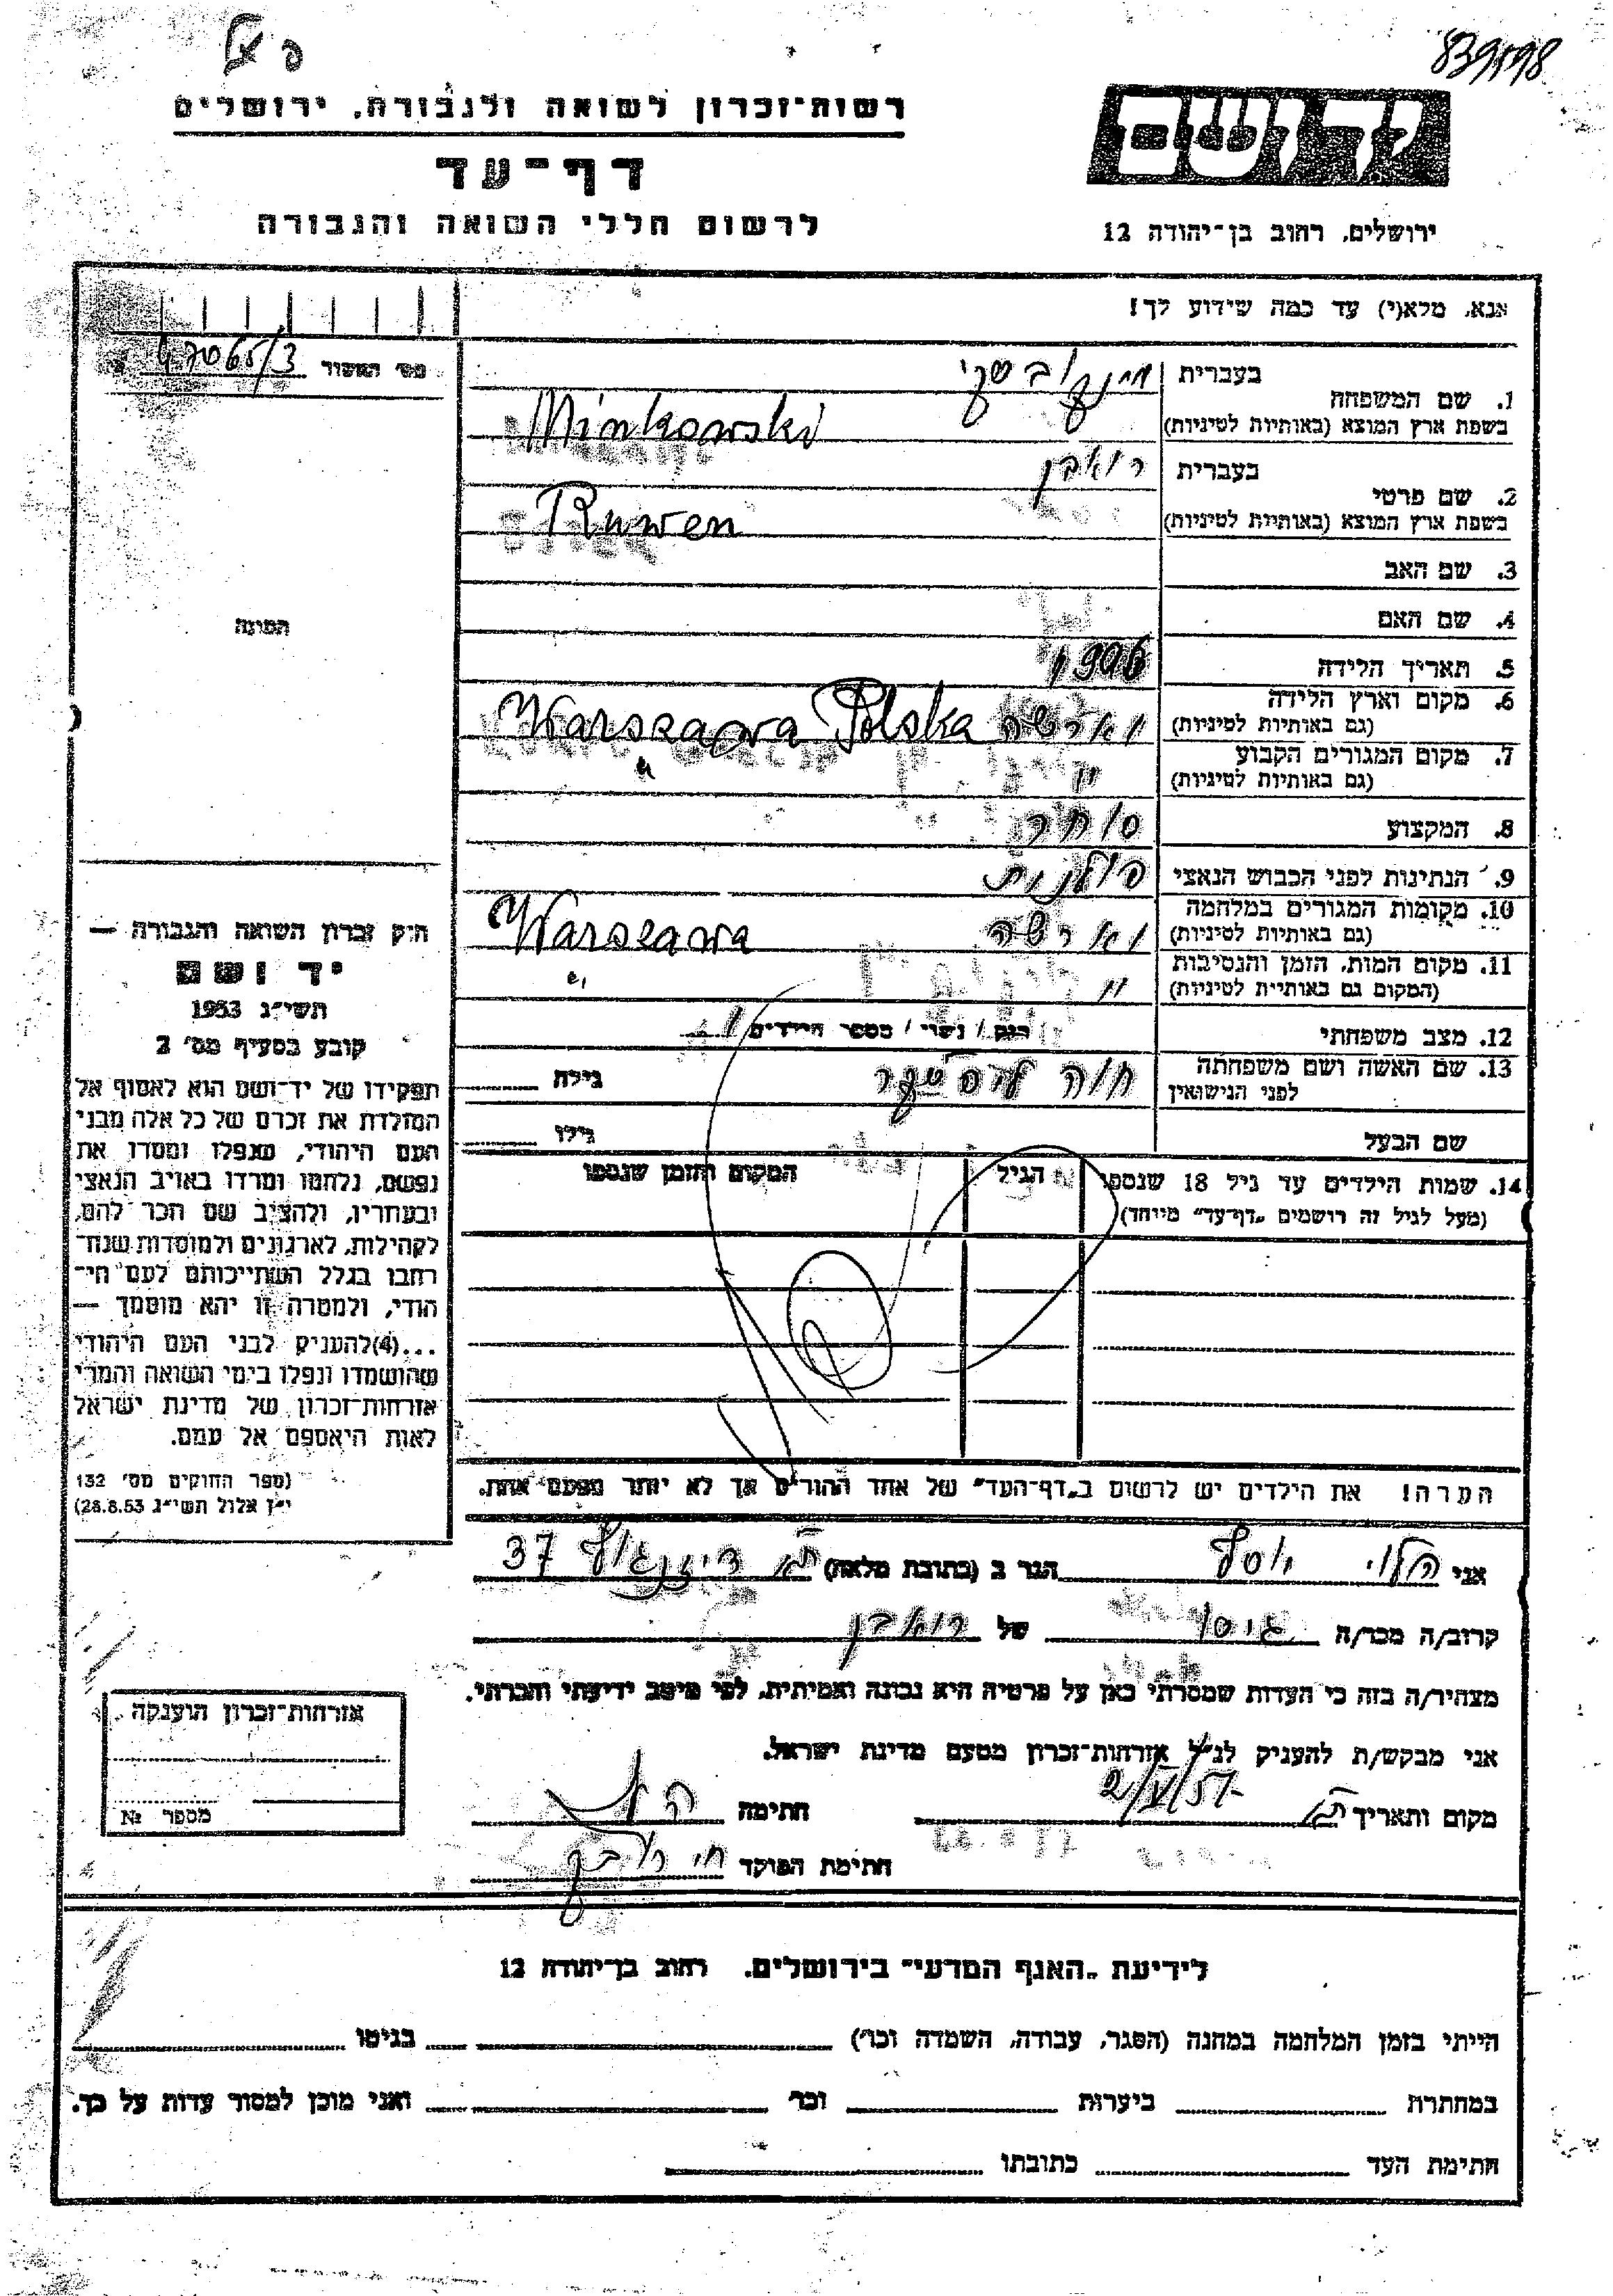 839198
רשות־זכרון לשואה ולגבורה, ירושלים
דף־עד
לרשום חללי השואה והגבורה
ידושם
ירושלים, רחוב בן־יהודה 12
אנא, מלא(י) עד כמה שידוע לך!
מס' האשור 47065/3
1. שם המשפחה בעברית מינקובסקי
בשפת ארץ המוצא (באותיות לטיניות) Minkowski
2. שם פרטי בעברית ראובן
בשפת ארץ המוצא (באותיות לטיניות) Ruwen
3. שם האב
4. שם האם
5. תאריך הלידה
6. מקום וארץ הלידה
(גם באותיות לטיניות) וארשה Warszawa Polska
7. מקום המגורים הקבוע
(גם באותיות לטיניות) " "
8. המקצוע סוחר
9. הנתינות לפני הכבוש הנאצי פולנית
10. מקומות המגורים במלחמה
(גם באותיות לטיניות) וארשה Warszawa
11. מקום המות, הזמן והנסיבות
(המקום גם באותיות לטיניות) " "
12. מצב משפחתי רווק / נשוי / מספר הילדים
13. שם האשה ושם משפחתה
לפני הנישואין חוה גילה
שם הבעל גילו
14. שמות הילדים עד גיל 18 שנספו הגיל המקום והזמן שנספו
(מעל לגיל זה רושמים „דף־עד" מיוחד)
הערה! את הילדים יש לרשום ב„דף־העד" של אחד ההורים אך לא יותר מפעם אחת.
התמונה
חוק זכרון השואה והגבורה —
יד ושם
תשי"ג 1953
קובע בסעיף מס' 2
תפקידו של יד־ושם הוא לאסוף אל
המולדת את זכרם של כל אלה מבני
העם היהודי, שנפלו ומסרו את
נפשם, נלחמו ומרדו באויב הנאצי
ובעוזריו, ולהציב שם וזכר להם,
לקהילות, לארגונים ולמוסדות שנח־
רבו בגלל השתייכותם לעם הי־
הודי, ולמטרה זו יהא מוסמך —
...(4) להעניק לבני העם היהודי
שהושמדו ונפלו בימי השואה והמרי
אזרחות־זכרון של מדינת ישראל
לאות היאספם אל עמם.
(ספר החוקים מס' 132
י"ז אלול תשי"ג 28.8.53)
אני הלוי יוסף הגר ב (כתובת מלאה) ת"א דיזנגוף 37
קרוב/ה מכר/ה גיסו של ראובן
מצהיר/ה בזה כי העדות שמסרתי כאן על פרטיה היא נכונה ואמיתית, לפי מיטב ידיעתי והכרתי.
אני מבקש/ת להעניק לנ"ל אזרחות־זכרון מטעם מדינת ישראל.
מקום ותאריך ת"א 2/V/57 חתימה
חתימת הפוקד
אזרחות־זכרון הוענקה
מספר №
לידיעת „האגף המדעי" בירושלים, רחוב בן־יהודה 12
הייתי בזמן המלחמה במחנה (הסגר, עבודה, השמדה וכו') בגיטו
במחתרת ביערות וכו' ואני מוכן למסור עדות על כך.
חתימת העד כתובתו